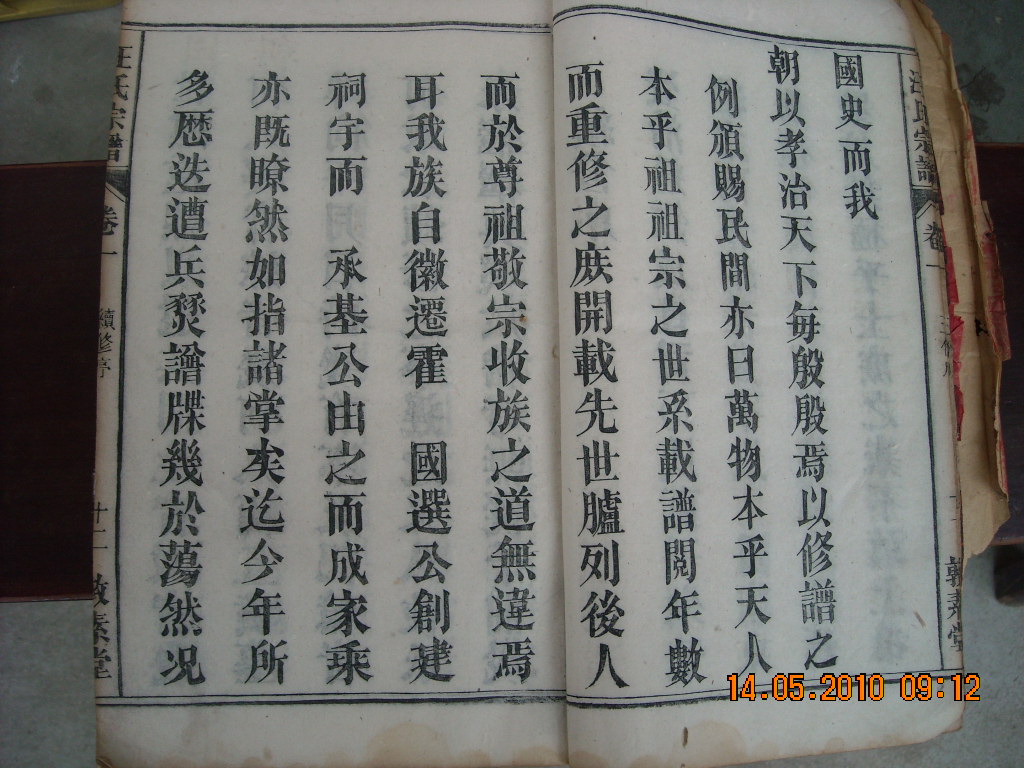 國史而我
朝以孝治天下每殷殷焉以修譜之
例頒賜民間亦曰萬物本乎天人
本乎祖祖宗之世系載譜閱年數
而重修之庶開載先世臚列後人
而於尊祖敬宗收族之道無違焉
耳我族自徽遷霍 國選公創建
祠宇而 承基公由之而成家乘
亦既瞭然如指諸掌矣迄今年所
多歷迭遭兵燹譜牒幾於蕩然况
汪氏宗譜 卷一 續修序 十二 敦素堂
14.05.2010 09:12